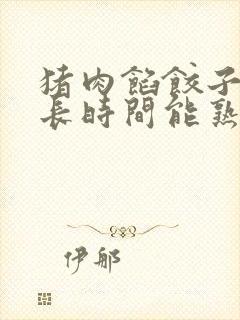 猪肉餡餃子
長時間能熟
伊那